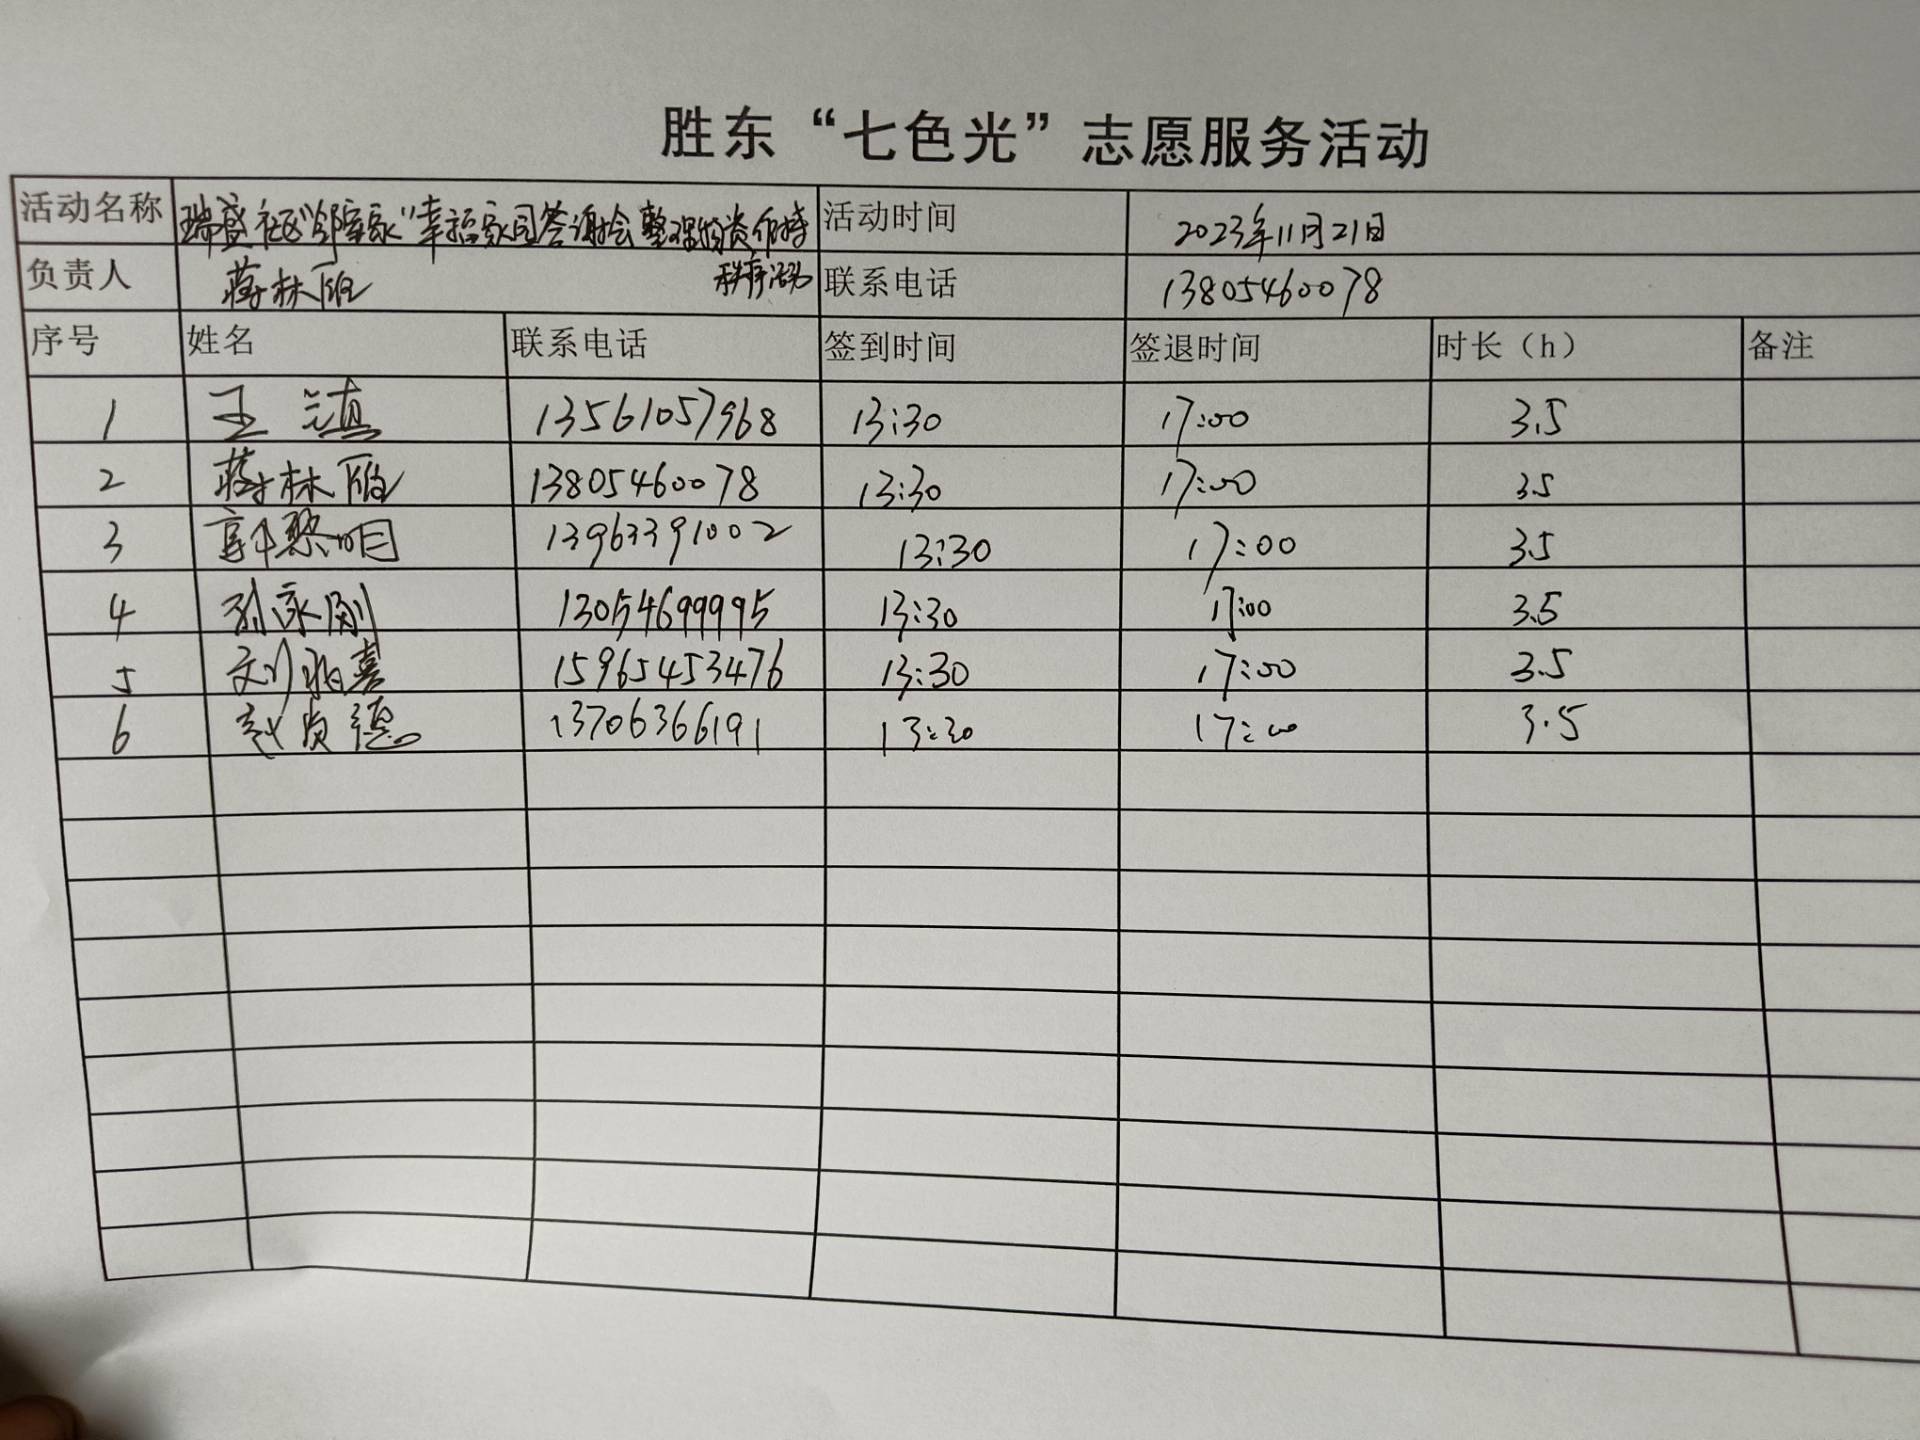 胜东“七色光”志愿服务活动
活动名称 瑞盛社区“邻里家”幸福家园答谢会整理物资维持秩序活动 活动时间 2023年11月21日
负责人 蒋林雁 联系电话 13805460078
序号 姓名 联系电话 签到时间 签退时间 时长（h） 备注
1 王滇 13561057968 13:30 17:00 3.5
2 蒋林雁 13805460078 13:30 17:00 3.5
3 郭黎明 13963391002 13:30 17:00 3.5
4 孙永刚 13054699995 13:30 17:00 3.5
5 刘嘉 15965453476 13:30 17:00 3.5
6 赵贞德 13706366191 13:30 17:00 3.5